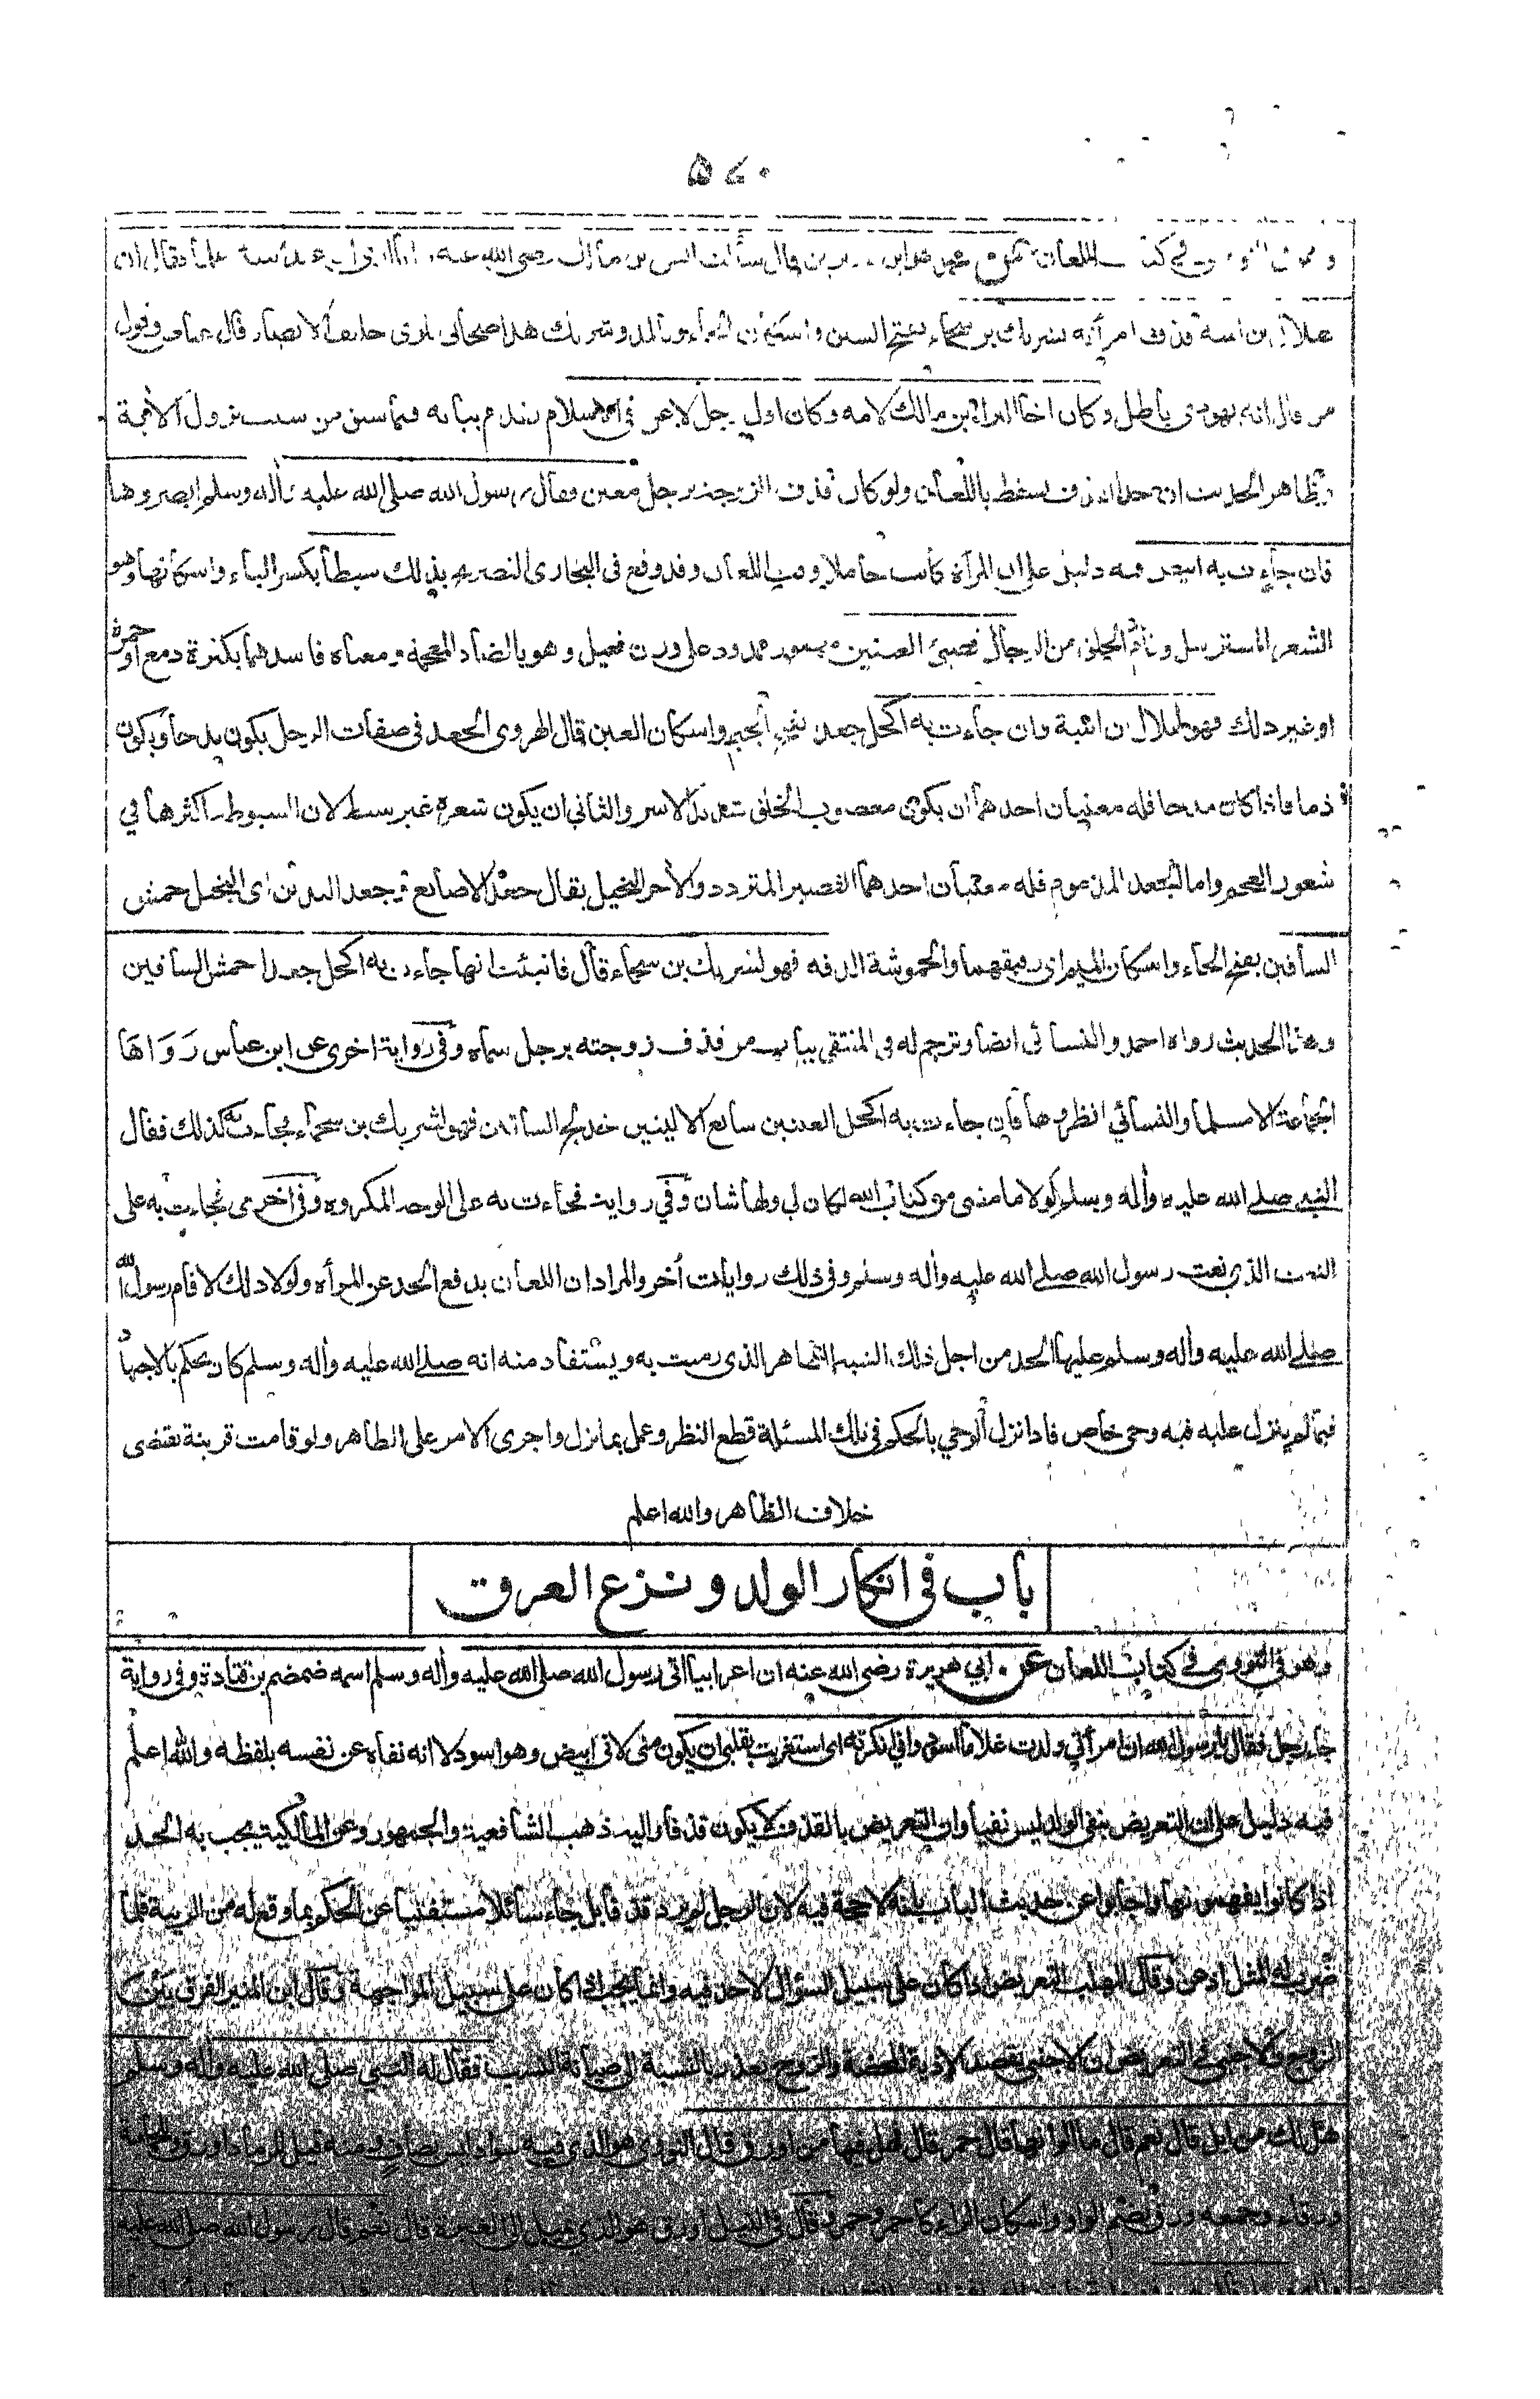 ٥٧٠
في كتاب اللعان عن محمد هو ابن قال سألت انس بن مالك رضي الله عنه فقال ان
هلال بن امية قذف امرأته بشريك بن سحماء بفتح السين واسكان الحاء وبالمد وشريك هذا صحابي بلوي حليف الانصار قال عياض وقول
من قال انه يهودي باطل وكان اخا البراء بن مالك لامه وكان اول رجل لاعن في الاسلام تقدم بيانه فيما سبق من سبب نزول الأية
وظاهر الحديث ان حد القذف يسقط باللعان ولو كان قذف الزوجة برجل معين وقال رسول الله صلى الله عليه وأله وسلم ابصروها
فان جاءت به ابيض فيه دليل على ان المرأة كانت حاملا وقت اللعان وقد وقع في البخاري التصريح بذلك سبطا بكسر الباء واسكانها وهو
الشعر المسترسل وتام الخلق من الرجال قضيئ العينين مهموز ممدود على وزن فعيل وهو بالضاد المعجمة ومعناه فاسدهما بكثرة دمع او حمرة
او غير ذلك فهو لهلال بن امية وان جاءت به اكحل جعدا بفتح الجيم واسكان العين قال الهروي الجعد في صفات الرجل يكون مدحا ويكون
ذما فاذا كان مدحا فله معنيان احدهما ان يكون معصوب الخلق شديد الاسر والثاني ان يكون شعره غير سبط لان السبوطة اكثرها في
شعور العجم واما الجعد المذموم فله معنيان احدهما القصير المتردد والأخر البخيل يقال جعد الاصابع وجعد اليدين اى البخيل حمش
الساقين بفتح الحاء واسكان الميم اى رقيقهما والحموشة الدقة فهو لشريك بن سحماء قال فانبئت انها جاءت به اكحل جعدا حمش الساقين
وهذا الحديث رواه احمد والنسائى ايضا وترجم له في المنتقى بباب من قذف زوجته برجل سماه وفي رواية اخرى عن ابن عباس رَوَاهَا
الجماعة الا مسلما والنسائي انظروها فان جاءت به اكحل العينين سابغ الاليتين خدلج الساقين فهو لشريك بن سحماء فجاءت به كذلك فقال
النبي صلى الله عليه وأله وسلم لولا ما مضى من كتاب الله لكان لي ولها شان وفي رواية فجاءت به على الوجه المكروه وفي اخرى فجاءت به على
النعت الذي نعت رسول الله صلى الله عليه وأله وسلم وفي ذلك روايات أخر والمراد ان اللعان يدفع الحد عن المرأة ولولا ذلك لاقام رسول الله
صلى الله عليه وأله وسلم عليها الحد من اجل ذلك الشبه الظاهر الذي رميت به ويستفاد منه انه صلى الله عليه وأله وسلم كان يحكم بالاجتهاد
فيما لم ينزل عليه فيه وحي خاص فاذا نزل الوحي بالحكم في تلك المسئلة قطع النظر وعمل بما نزل واجرى الامر على الظاهر ولو قامت قرينة تقتضى
خلاف الظاهر والله اعلم
باب في انكار الولد ونزع العرق
وهو في النووى في كتاب اللعان عن ابي هريرة رضي الله عنه ان اعرابيا اتى رسول الله صلى الله عليه وأله وسلم اسمه ضمضم بن قتادة وفي رواية
جاء رجل فقال يا رسول الله ان امرأتي ولدت غلاما اسود واني انكرته اى استغربت بقلبي ان يكون مني لاني ابيض وهو اسود لا انه نفاه عن نفسه بلفظه والله اعلم
فيه دليل على ان التعريض بنفي الولد ليس نفيا وان التعريض بالقذف لا يكون قذفا واليه ذهب الشافعية والجمهور وعن المالكية يجب به الحد
اذا كانوا يفهمونها واجابوا عن حديث الباب بانه لا حجة فيه لان الرجل لم يرد قذفا بل جاء سائلا مستفتيا عن الحكم بما وقع له من الريبة فلما
ضرب له المثل اذعن وقال المهلب التعريض اذا كان على سبيل السؤال لا حد فيه وانما يجب اذا كان على سبيل المواجهة وقال ابن المنير الفرق بين
الزوج والاجنبي في التعريض ان الاجنبي يقصد الاذية المحضة والزوج يعذر بالنسبة الى صيانة النسب فقال له النبي صلى الله عليه وأله وسلم
هل لك من ابل قال نعم قال ما الوانها قال حمر قال فهل فيها من اورق قال النووي هو الذي فيه سواد ليس بصاف ومنه قيل للرماد اورق وللحمامة
ورقاء وجمعه ورق بضم الواو واسكان الراء كاحمر وحمر قال نعم قال رسول الله صلى الله عليه